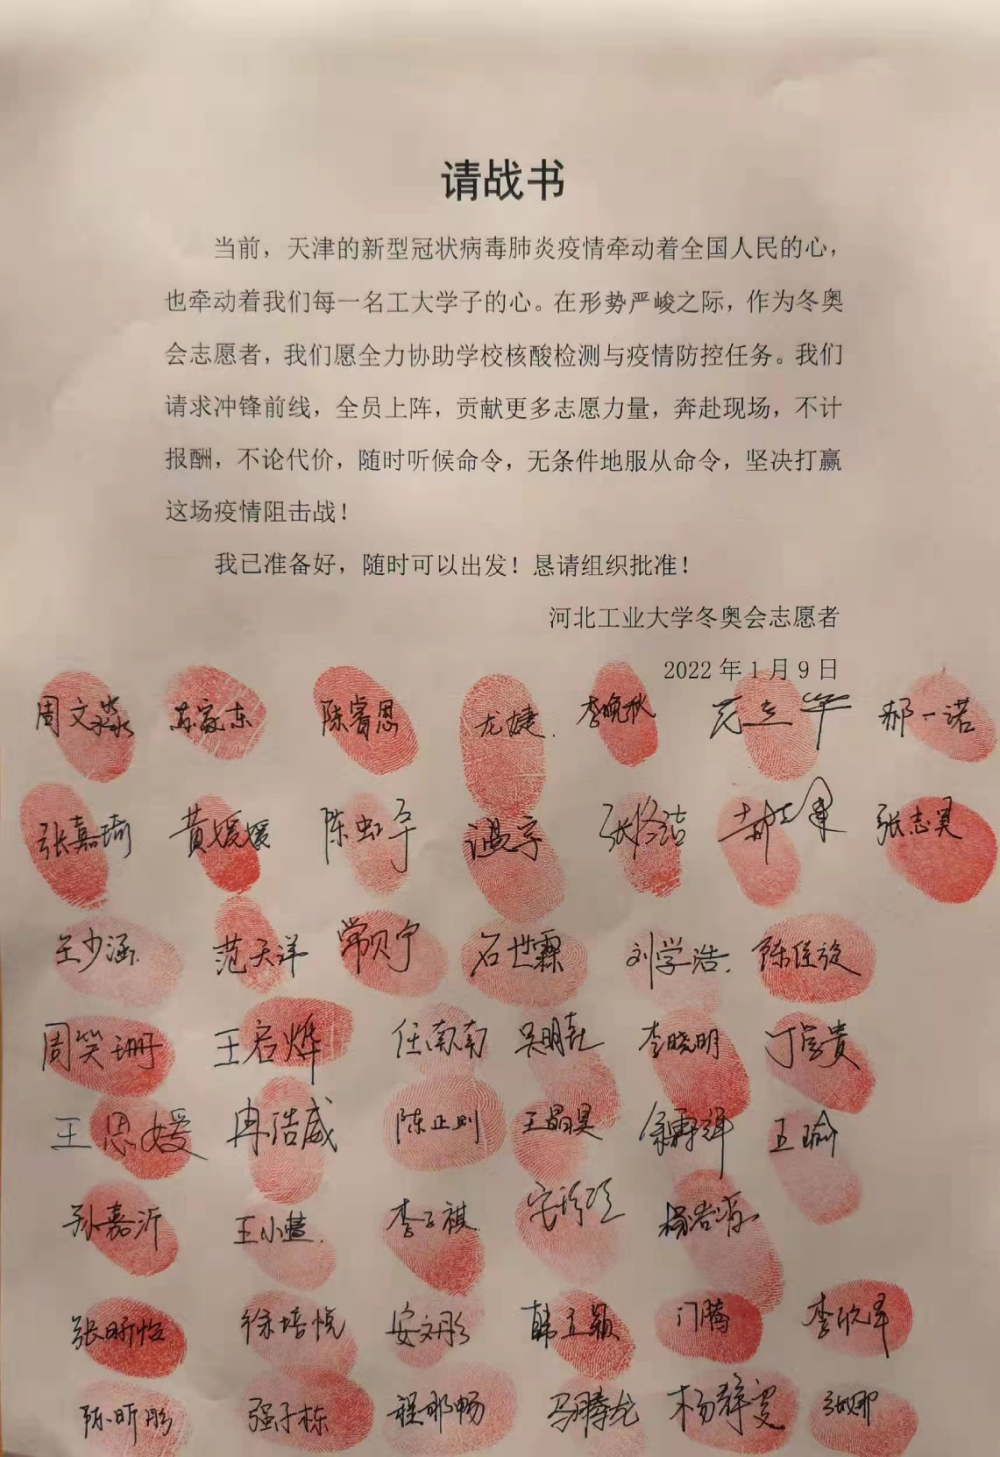 请战书
当前，天津的新型冠状病毒肺炎疫情牵动着全国人民的心，
也牵动着我们每一名工大学子的心。在形势严峻之际，作为冬奥
会志愿者，我们愿全力协助学校核酸检测与疫情防控任务。我们
请求冲锋前线，全员上阵，贡献更多志愿力量，奔赴现场，不计
报酬，不论代价，随时听候命令，无条件地服从命令，坚决打赢
这场疫情阻击战！
我已准备好，随时可以出发！恳请组织批准！
河北工业大学冬奥会志愿者
2022 年 1 月 9 日
周文淼 苏家东 陈睿恩 尤婕. 李晚秋 郝一诺
张嘉琦 黄媛媛 陈虹宇 温宇 张志昊
王少涵 范天洋 常贝宁 石世霖 刘学浩. 陈佳旋
周笑珊 王启烨 任南南 吴明哲 李晓明
王思媛 冉浩威 陈正则 王晶昊 王瑜
孙嘉沂 王小慧. 李子祺
张昕怡 徐培悦 安文彤 韩立颖 门腾 李欣泽
陈昕彤 强子栋 程郁畅 马腾龙 杨静雯 张娜